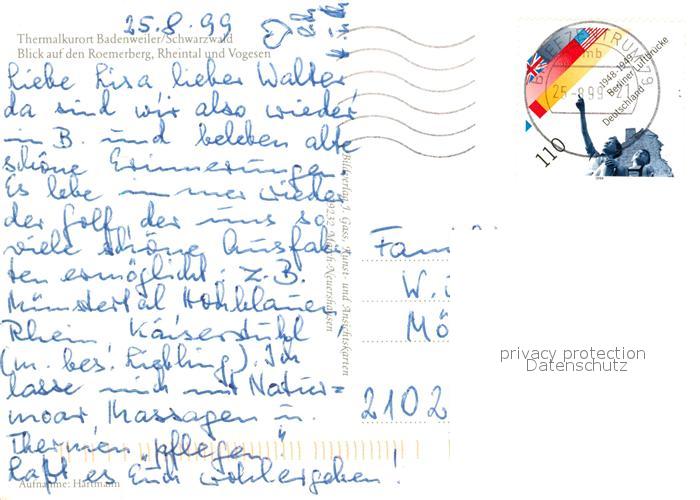 25.8.99
Thermalkurort Badenweiler/Schwarzwald
Blick auf den Roemerberg, Rheintal und Vogesen
Liebe Lisa, lieber Walter
da sind wir also wieder
in B. und beleben alte
schöne Erinnerungen.
Es lebe immer wieder
der Golf der uns so
viele schöne Ausfahr-
ten ermöglicht: z.B.
Münstertal, Hochblauen,
Rhein, Kaiserstuhl
(m. bes. Liebling). Ich
lasse mich mit Natur=
moor, Massagen u.
Thermen "pflegen".
Laßt es Euch wohlergehen!
Aufnahme: Hartmann
Bildverlag J. Gass, Kunst- und Ansichtskarten
79232 March-Neuershausen
BRIEFZENTRUM 79
mb
25-8.99-21
1948-1949
Berliner Luftbrücke
Deutschland
110
Fam
W.
Mö
2102
privacy protection
Datenschutz